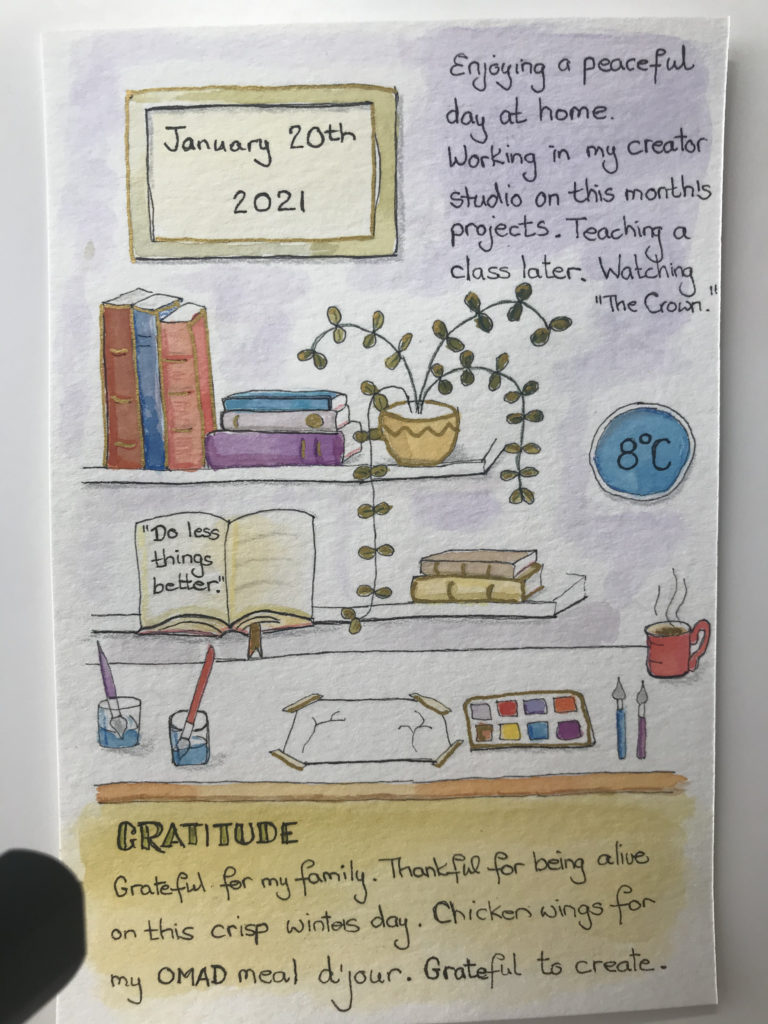 January 20th
2021
Enjoying a peaceful
day at home.
Working in my creator
studio on this month's
projects. Teaching a
class later. Watching
"The Crown."
8°C
"Do less
things
better."
GRATITUDE
Grateful for my family. Thankful for being alive
on this crisp winters day. Chicken wings for
my OMAD meal d'jour. Grateful to create.